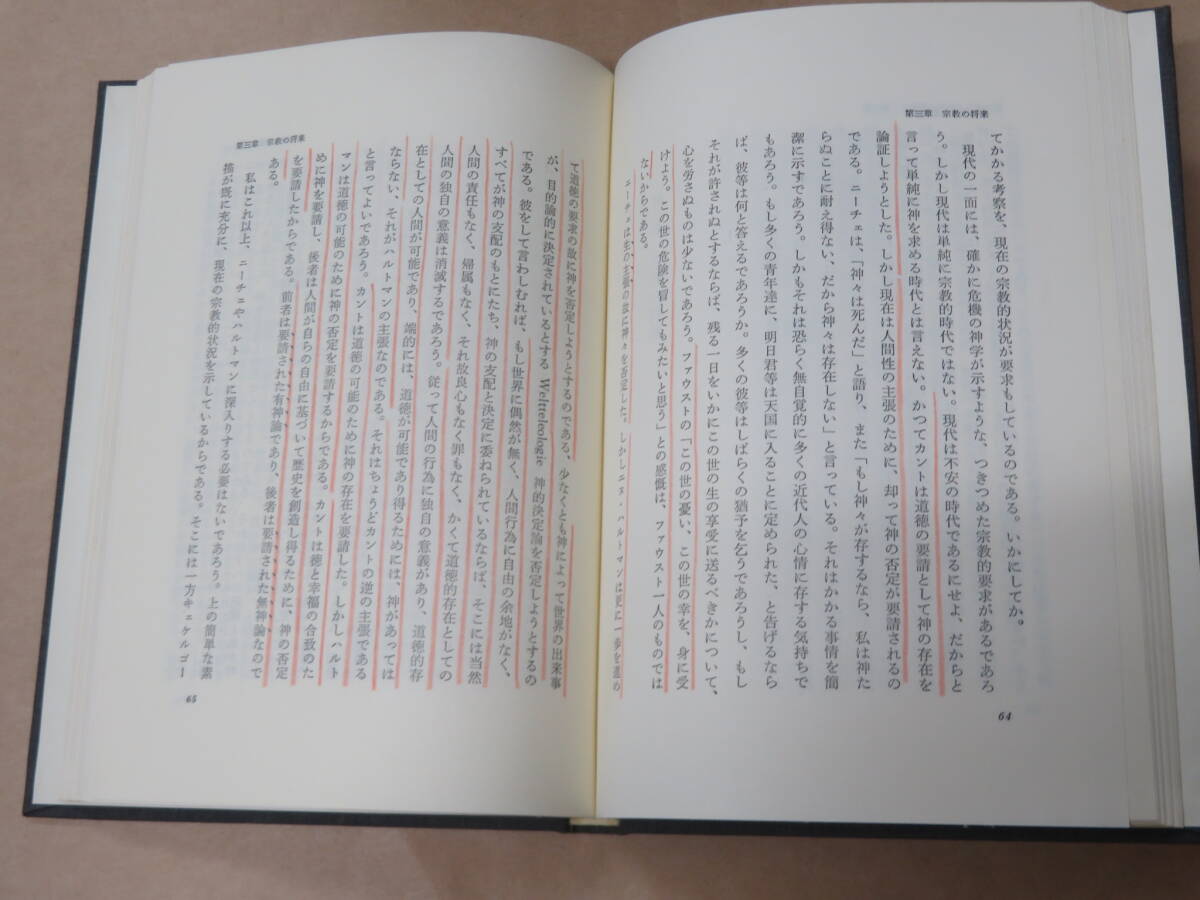 第三章 宗教の将来
てかかる考察を、現在の宗教的状況が要求もしているのである。いかにしてか。
現代の一面には、確かに危機の神学が示すような、つきつめた宗教的要求があるであろ
う。しかし現代は単純に宗教的時代ではない。現代は不安の時代であるにせよ、だからと
言って単純に神を求める時代とは言えない。かつてカントは道徳の要請として神の存在を
論証しようとした。しかし現在は人間性の主張のために、却って神の否定が要請されるの
である。ニーチェは、「神々は死んだ」と語り、また「もし神々が存するなら、私は神た
らぬことに耐え得ない、だから神々は存在しない」と言っている。それはかかる事情を簡
潔に示すであろう。しかもそれは恐らく無自覚的に多くの近代人の心情に存する気持ちで
もあろう。もし多くの青年達に、明日君等は天国に入ることに定められた、と告げるなら
ば、彼等は何と答えるであろうか。多くの彼等はしばらくの猶予を乞うであろうし、もし
それが許されぬとするならば、残る一日をいかにこの世の生の享受に送るべきかについて、
心を労さぬものは少ないであろう。ファウストの「この世の憂い、この世の幸を、身に受
けよう。この世の危険を冒してもみたいと思う」との感慨は、ファウスト一人のものでは
ないからである。
ニーチェは生の主張の故に神々を否定した。しかしニコ・ハルトマンは更に一歩を進め
64
第三章 宗教の将来
て道徳の要求の故に神を否定しようとするのである、少なくとも神によって世界の出来事
が、目的論的に決定されているとする Weltteleologie 神的決定論を否定しようとするの
である。彼をして言わしむれば、もし世界に偶然が無く、人間行為に自由の余地がなく、
すべてが神の支配のもとにたち、神の支配と決定に委ねられているならば、そこには当然
人間の責任もなく、帰属もなく、それ故良心もなく罪もなく、かくて道徳的存在としての
人間の独自の意義は消滅するであろう。従って人間の行為に独自の意義があり、道徳的存
在としての人間が可能であり、端的には、道徳が可能であり得るためには、神があっては
ならない、それがハルトマンの主張なのである。それはちょうどカントの逆の主張である
と言ってよいであろう。カントは道徳の可能のために神の存在を要請した。しかしハルト
マンは道徳の可能のために神の否定を要請するからである。カントは徳と幸福の合致のた
めに神を要請し、後者は人間が自らの自由に基づいて歴史を創造し得るために、神の否定
を要請したからである。前者は要請された有神論であり、後者は要請された無神論なので
ある。
私はこれ以上、ニーチェやハルトマンに深入りする必要はないであろう。上の簡単な素
描が既に充分に、現在の宗教的状況を示しているからである。そこには一方キェケルゴー
65